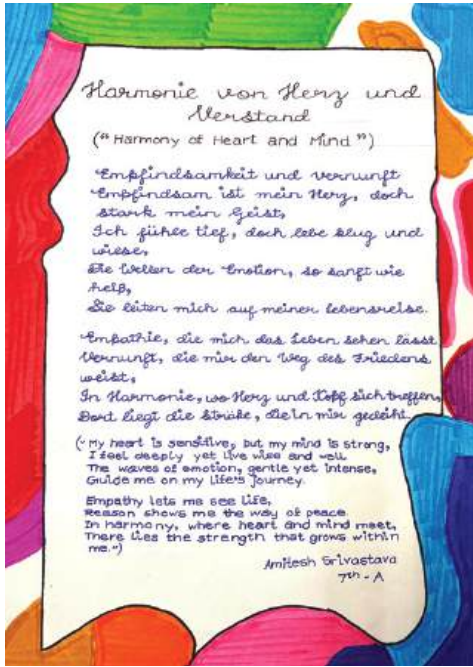 Harmonie von Herz und
Verstand
("Harmony of Heart and Mind")
Empfindsamkeit und vernunft
Empfindsam ist mein Herz, doch
stark mein Geist,
Ich fühle tief, doch lebe klug und
wiese,
Die Wellen der Emotion, so sanft wie
heiß,
Sie leiten mich auf meiner lebensreise.
Empathie, die mich das Leben sehen lässt
Vernunft, die mir den Weg des Friedens
weist,
In Harmonie, wo Herz und Kopf sich treffen,
Dort liegt die Sträke, die in mir gedeiht.
("My heart is sensitive, but my mind is strong,
I feel deeply yet live wise and well
The waves of emotion, gentle yet intense,
Guide me on my life's journey.
Empathy lets me see life,
Reason shows me the way of peace.
In harmony, where heart and mind meet,
There lies the strength that grows within
me.")
Amitesh Srivastava
7th - A